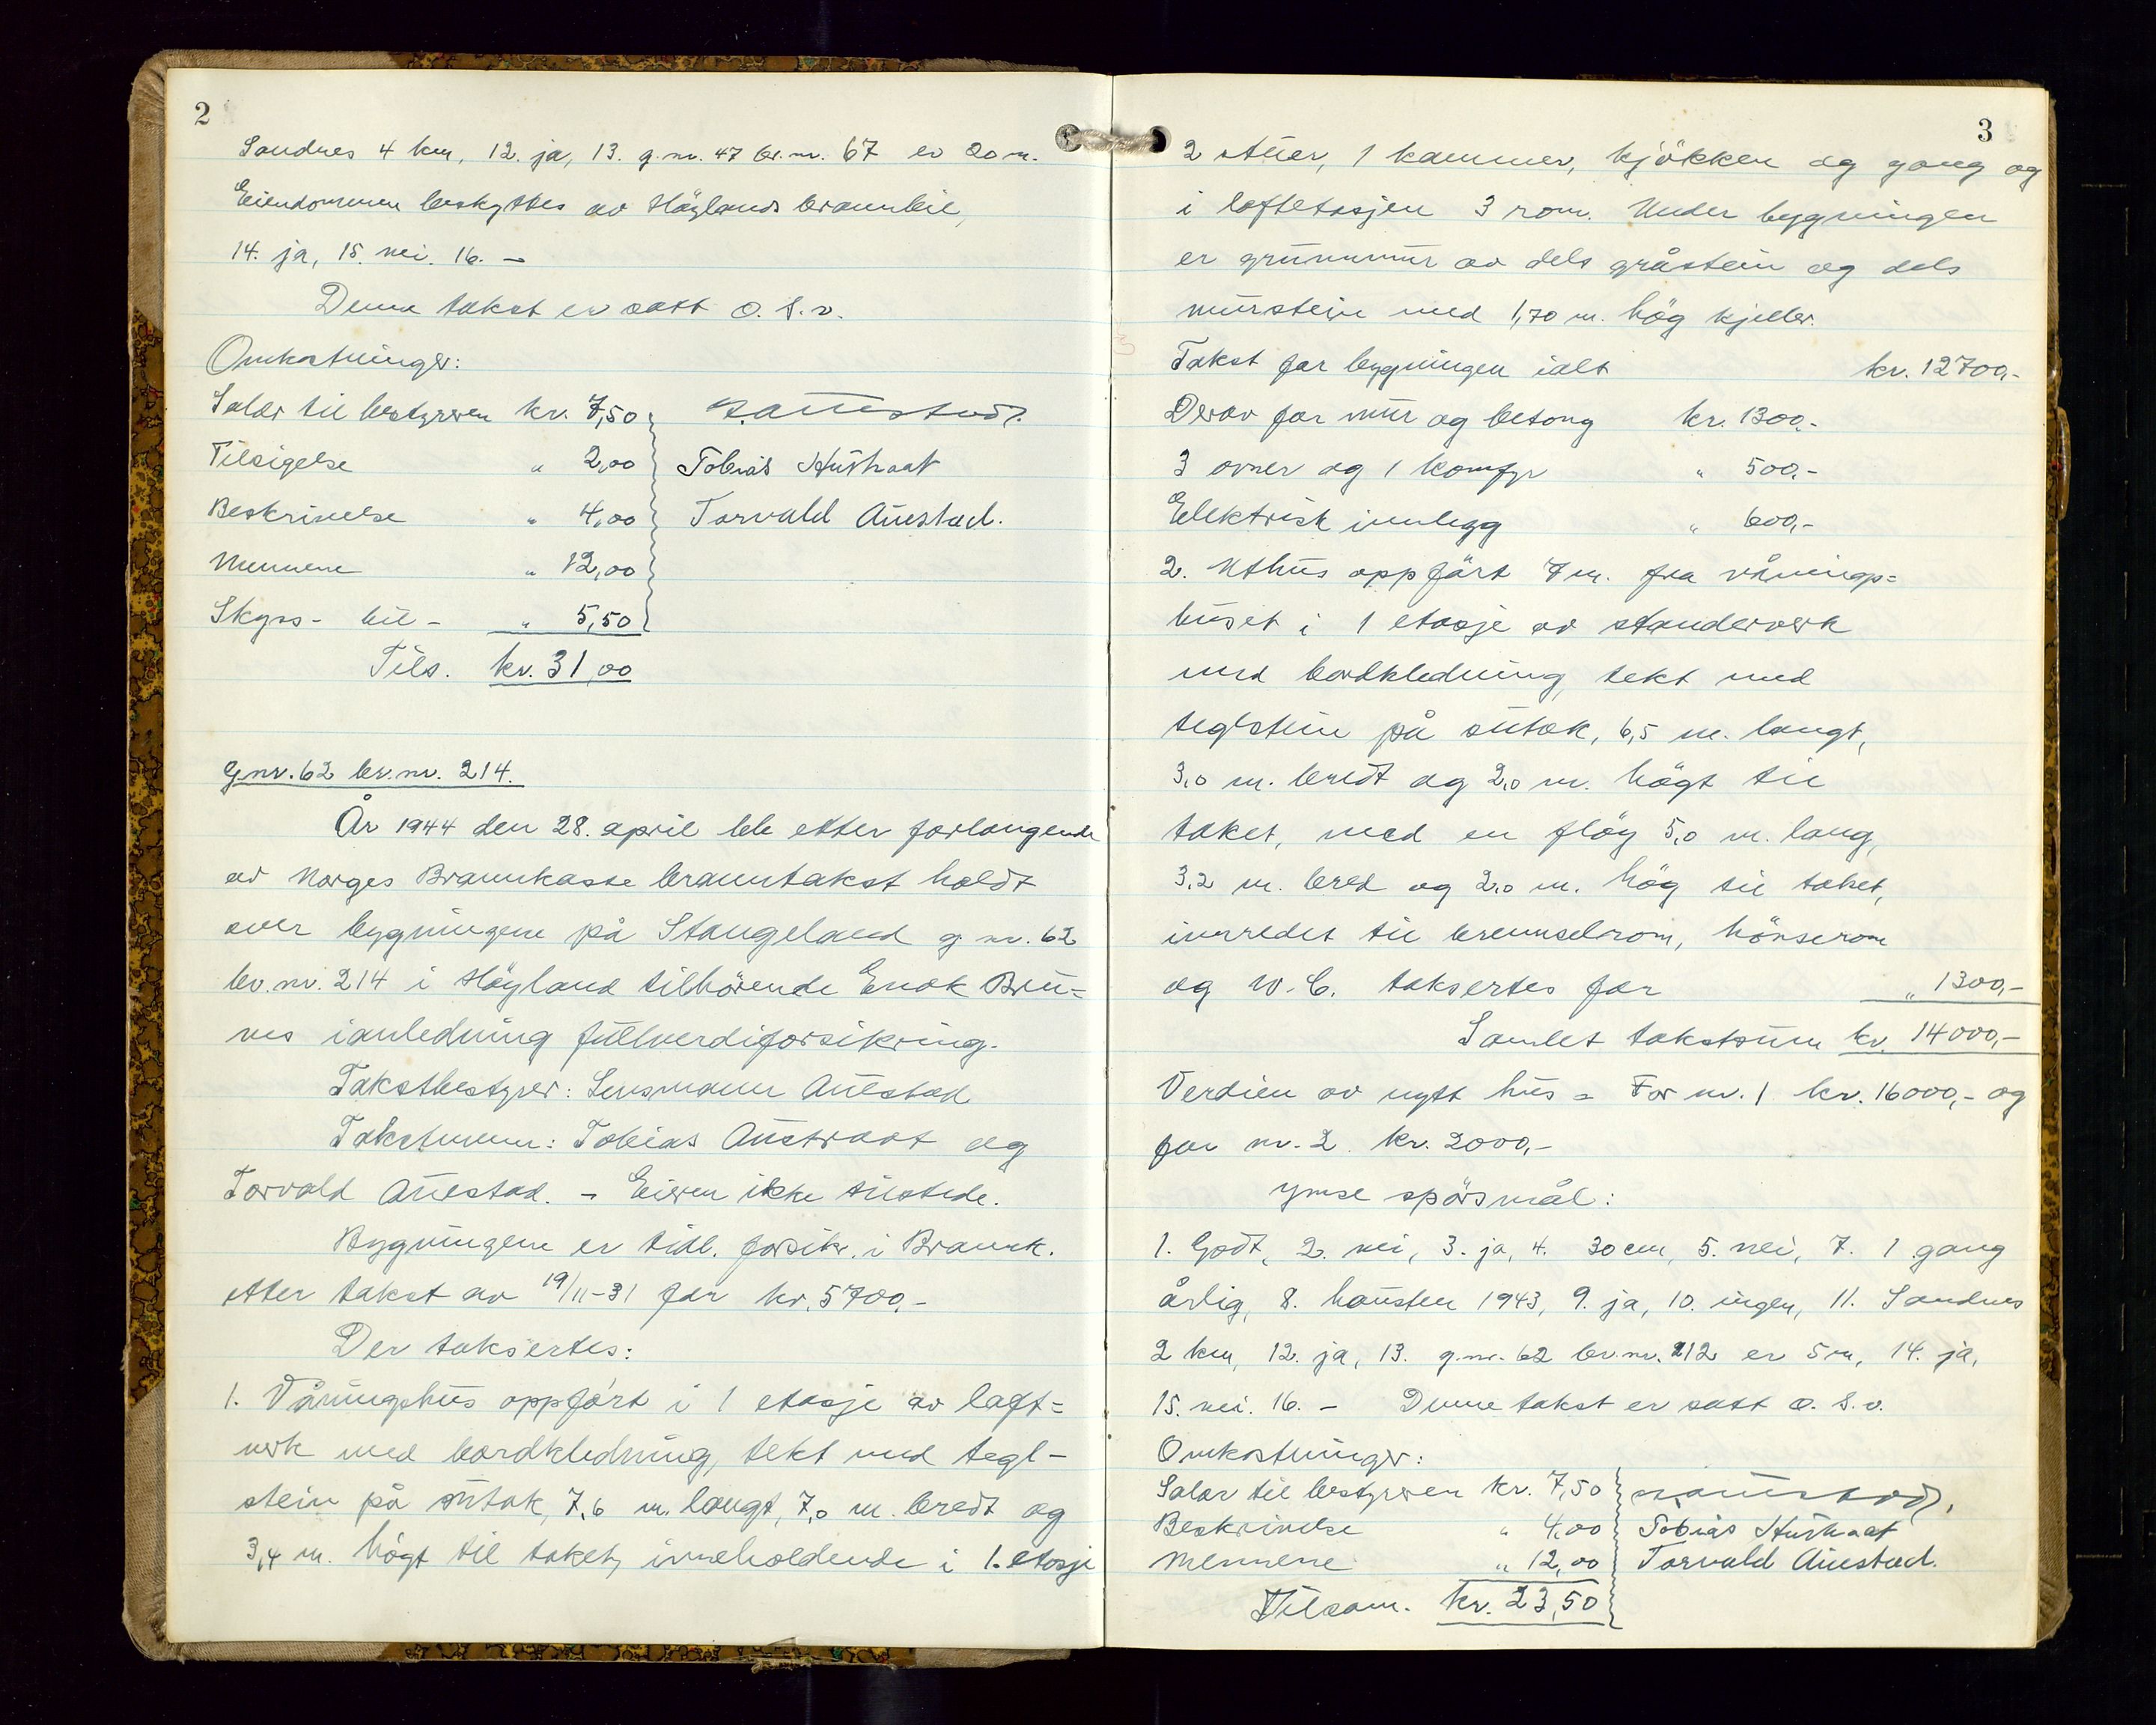 2
Sandnes 4 km, 12. ja, 13. g.nr. 47 br.nr. 67 er 20 m.
Eiendommen beskyttes av Høylands brannbil,
14. ja, 15. nei. 16. –
Denne takst er satt o.s.v.
Omkostninger:
Salær til bestyreren kr. 7,50
Tilsigelse " 2,00 Tobias Austraat
Beskrivelse " 4,00 Torvald Auestad.
Mennene " 12,00
Skyss - bil - " 5,50
Tils. kr. 31,00
G.nr. 62 br.nr. 214.
År 1944 den 28. april ble etter forlangende
av Norges Brannkasse branntakst holdt
over bygningene på Stangeland g.nr. 62
br.nr. 214 i Høyland tilhørende Enok Bru=
nes i anledning fullverdiforsikring.
Takstbestyrer: Lensmann Auestad
Takstmenn: Tobias Austraat og
Torvald Auestad. – Eieren ikke tilstede.
Bygningene er tidl. forsikr. i Brannk.
etter takst av 19/11-31 for kr. 5700,-
Der taksertes:
1. Våningshus oppført i 1 etasje av laft=
verk med bordkledning, tekt med tegl-
stein på sutak, 7,6 m. langt, 7,0 m. bredt og
3,4 m. høgt til taket, inneholdende i 1. etasje
3
2 stuer, 1 kammer, kjøkken og gang og
i loftetasjen 3 rom. Under bygningen
er grunnmur av dels gråstein og dels
murstein med 1,70 m. høg kjeller.
Takst for bygningen ialt kr. 12700,-
Derav for mur og betong kr. 1300,-
3 ovner og 1 komfyr " 500,-
Elektrisk innlegg " 600,-
2. Uthus oppført 7 m. fra vånings=
huset i 1 etasje av standerverk
med bordkledning, tekt med
teglstein på sutak, 6,5 m. langt,
3,0 m. bredt og 2,0 m. høgt til
taket, med en fløy 5,0 m. lang,
3,2 m. bred og 2,0 m. høg til taket,
innredet til brenselrom, hönserom
og W.C. taksertes for " 1300,-
Samlet takstsum kr. 14000,-
Verdien av nytt hus = For nr. 1 kr. 16000,- og
for nr. 2 kr. 2000,-
Ymse spörsmål:
1. Godt, 2. nei, 3. ja, 4. 30 cm, 5. nei, 7. 1 gang
årlig, 8. hausten 1943, 9. ja, 10. ingen, 11. Sandnes
2 km, 12. ja, 13. g.nr. 62 br.nr. 212 er 5 m, 14. ja,
15. nei. 16. – Denne takst er satt o.s.v.
Omkostninger:
Salær til bestyreren kr. 7,50
Beskrivelse " 4,00 Tobias Austraat
Mennene " 12,00 Torvald Auestad.
Tilsam. kr. 23,50